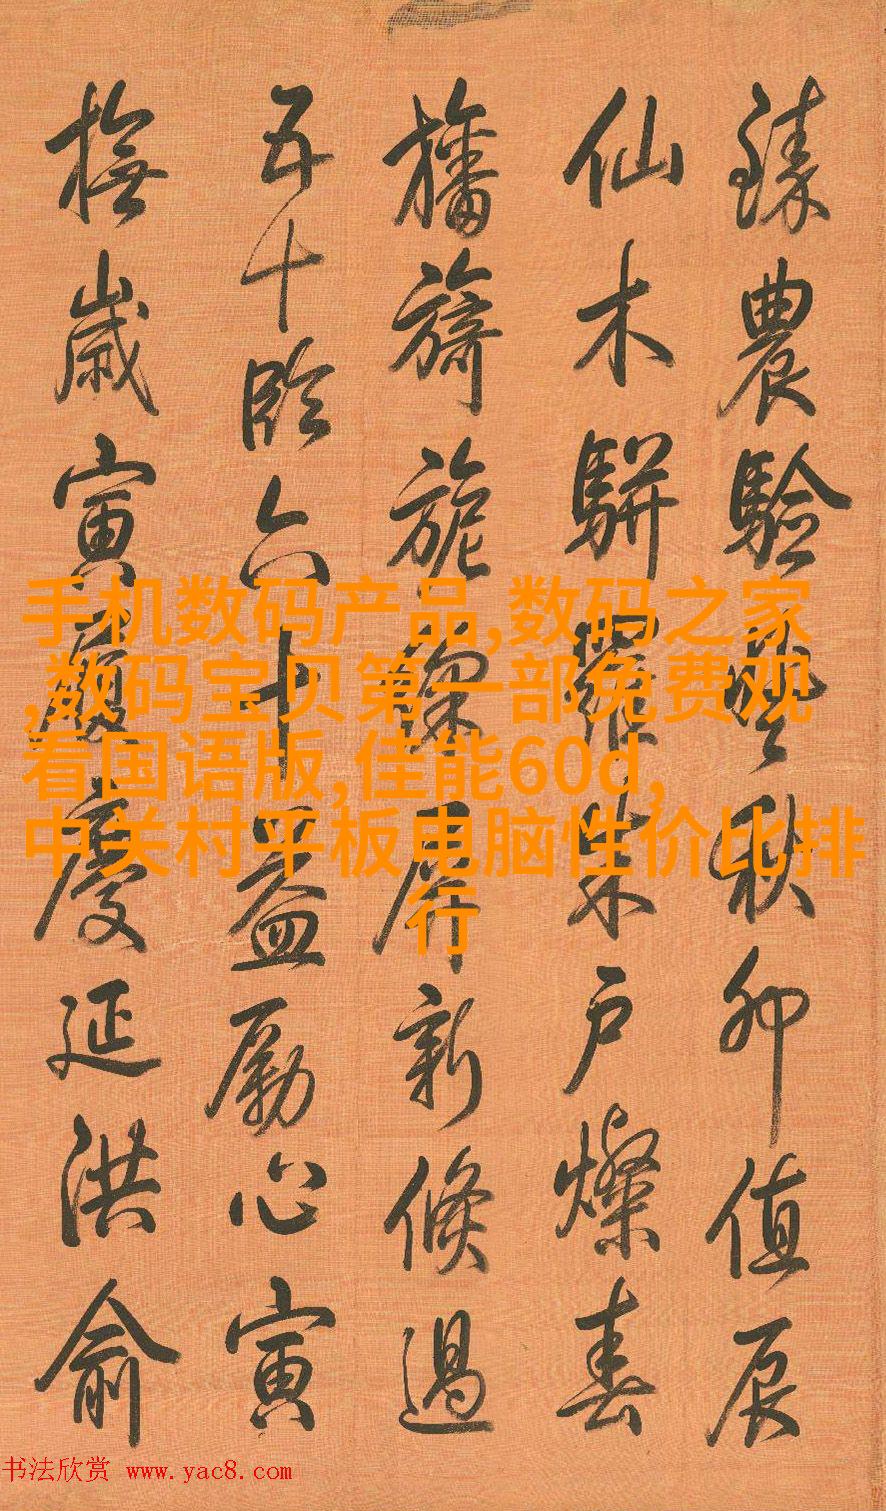 農驗秋卯值辰
仙木駢羅朱戶燦春
旛旖旎綵屏新倏過
五十臨六十益勵心寅
撫歲寅嚴慶延洪俞
手机数码产品,数码之家
,数码宝贝第一部免费观
看国语版,佳能60d,
中关村平板电脑性价比排
行
书法欣赏 www.yac8.com